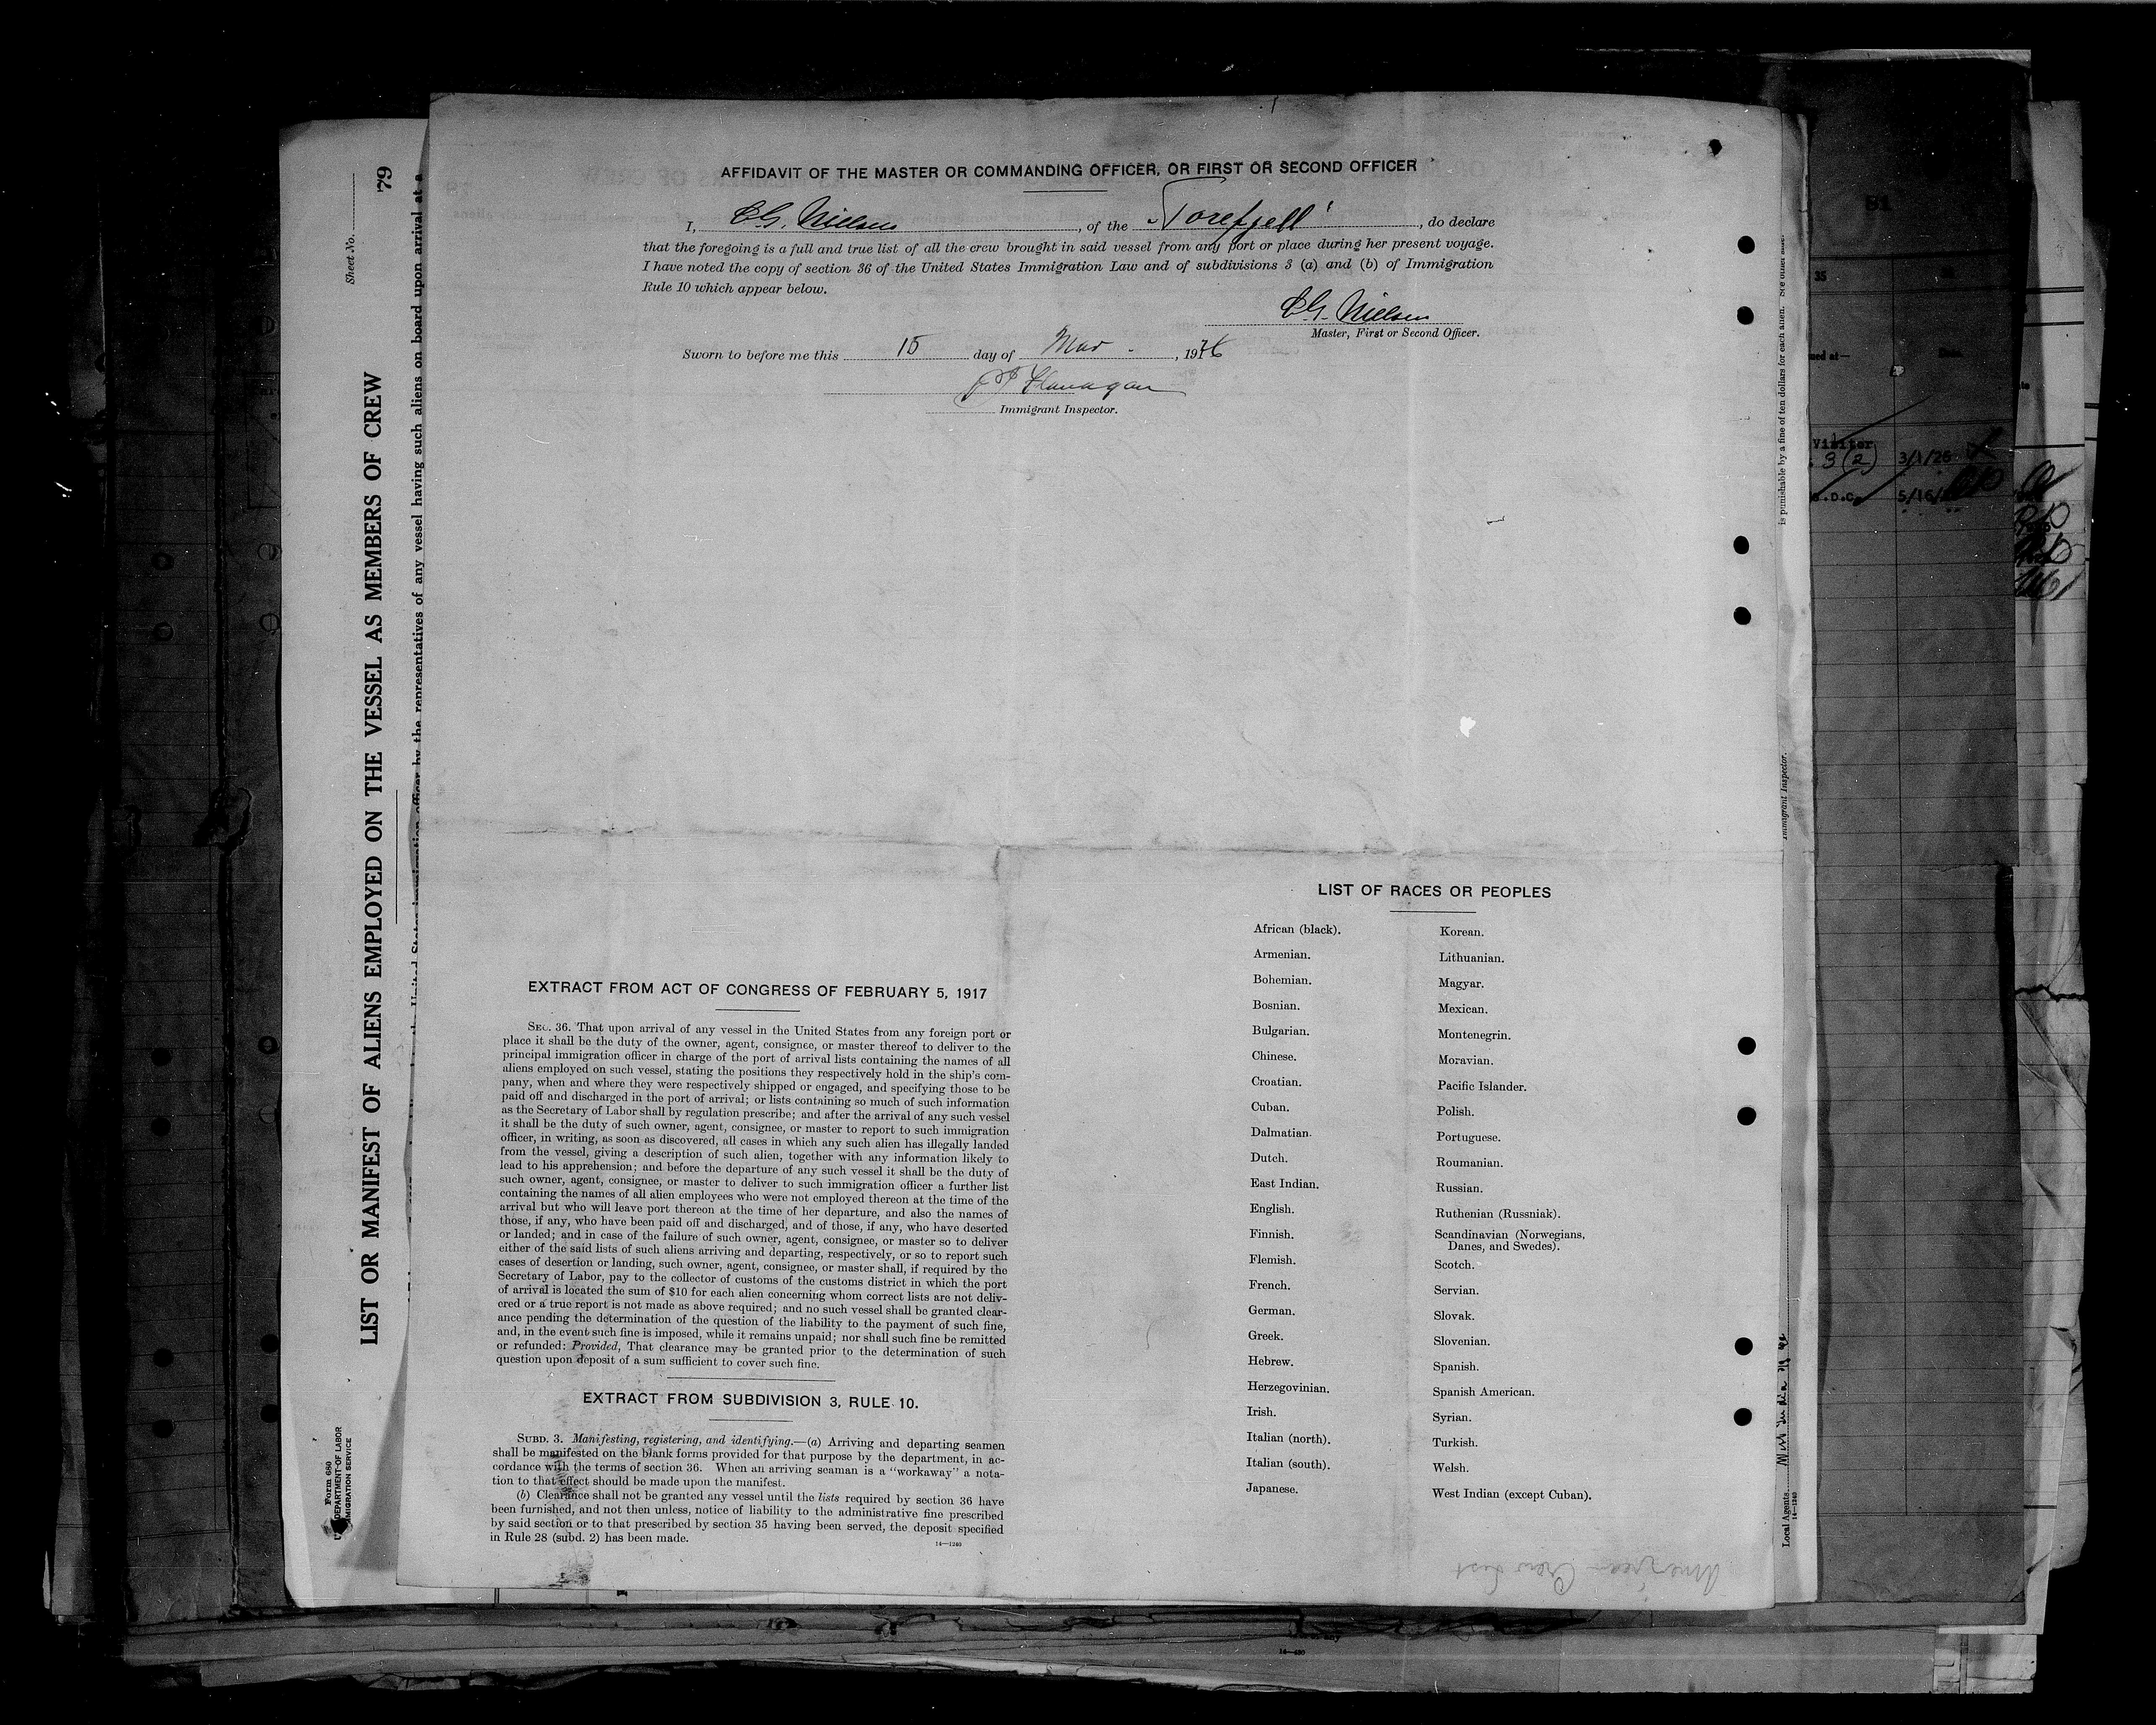 AFFIDAVIT OF THE MASTER OR COMMANDING OFFICER, OR FIRST OR SECOND OFFICER
I, C.G. Nielsen, of the "Torefjell", do declare
that the foregoing is a full and true list of all the crew brought in said vessel from any port or place during her present voyage.
I have noted the copy of section 36 of the United States Immigration Law and of subdivisions 3 (a) and (b) of Immigration
Rule 10 which appear below.
C.G. Nielsen
Master, First or Second Officer.
Sworn to before me this 15 day of Mar., 1926
Flanagan
Immigrant Inspector.
EXTRACT FROM ACT OF CONGRESS OF FEBRUARY 5, 1917
SEC. 36. That upon arrival of any vessel in the United States from any foreign port or
place it shall be the duty of the owner, agent, consignee, or master thereof to deliver to the
principal immigration officer in charge of the port of arrival lists containing the names of all
aliens employed on such vessel, stating the positions they respectively hold in the ship's com-
pany, when and where they were respectively shipped or engaged, and specifying those to be
paid off and discharged in the port of arrival; or lists containing so much of such information
as the Secretary of Labor shall by regulation prescribe; and after the arrival of any such vessel
it shall be the duty of such owner, agent, consignee, or master to report to such immigration
officer, in writing, as soon as discovered, all cases in which any such alien has illegally landed
from the vessel, giving a description of such alien, together with any information likely to
lead to his apprehension; and before the departure of any such vessel it shall be the duty of
such owner, agent, consignee, or master to deliver to such immigration officer a further list
containing the names of all alien employees who were not employed thereon at the time of the
arrival but who will leave port thereon at the time of her departure, and also the names of
those, if any, who have been paid off and discharged, and of those, if any, who have deserted
or landed; and in case of the failure of such owner, agent, consignee, or master so to deliver
either of the said lists of such aliens arriving and departing, respectively, or so to report such
cases of desertion or landing, such owner, agent, consignee, or master shall, if required by the
Secretary of Labor, pay to the collector of customs of the customs district in which the port
of arrival is located the sum of $10 for each alien concerning whom correct lists are not deliv-
ered or a true report is not made as above required; and no such vessel shall be granted clear-
ance pending the determination of the question of the liability to the payment of such fine,
and, in the event such fine is imposed, while it remains unpaid; nor shall such fine be remitted
or refunded: Provided, That clearance may be granted prior to the determination of such
question upon deposit of a sum sufficient to cover such fine.
EXTRACT FROM SUBDIVISION 3, RULE 10.
SUBD. 3. Manifesting, registering, and identifying.—(a) Arriving and departing seamen
shall be manifested on the blank forms provided for that purpose by the department, in ac-
cordance with the terms of section 36. When an arriving seaman is a "workaway" a nota-
tion to that effect should be made upon the manifest.
(b) Clearance shall not be granted any vessel until the lists required by section 36 have
been furnished, and not then unless, notice of liability to the administrative fine prescribed
by said section or to that prescribed by section 35 having been served, the deposit specified
in Rule 28 (subd. 2) has been made.
14—1240
LIST OF RACES OR PEOPLES
African (black).
Armenian.
Bohemian.
Bosnian.
Bulgarian.
Chinese.
Croatian.
Cuban.
Dalmatian.
Dutch.
East Indian.
English.
Finnish.
Flemish.
French.
German.
Greek.
Hebrew.
Herzegovinian.
Irish.
Italian (north).
Italian (south).
Japanese.
Korean.
Lithuanian.
Magyar.
Mexican.
Montenegrin.
Moravian.
Pacific Islander.
Polish.
Portuguese.
Roumanian.
Russian.
Ruthenian (Russniak).
Scandinavian (Norwegians,
Danes, and Swedes).
Scotch.
Servian.
Slovak.
Slovenian.
Spanish.
Spanish American.
Syrian.
Turkish.
Welsh.
West Indian (except Cuban).
American Crew List
Sheet No.
79
LIST OR MANIFEST OF ALIENS EMPLOYED ON THE VESSEL AS MEMBERS OF CREW
officer by the representatives of any vessel having such aliens on board upon arrival at a
Form 680
DEPARTMENT OF LABOR
IMMIGRATION SERVICE
is punishable by a fine of ten dollars for each alien.
Immigrant Inspector.
Local Agents
14—1240
81
35
Date.
Visitor
3 (2)
3/1/26
5/16/
14—480